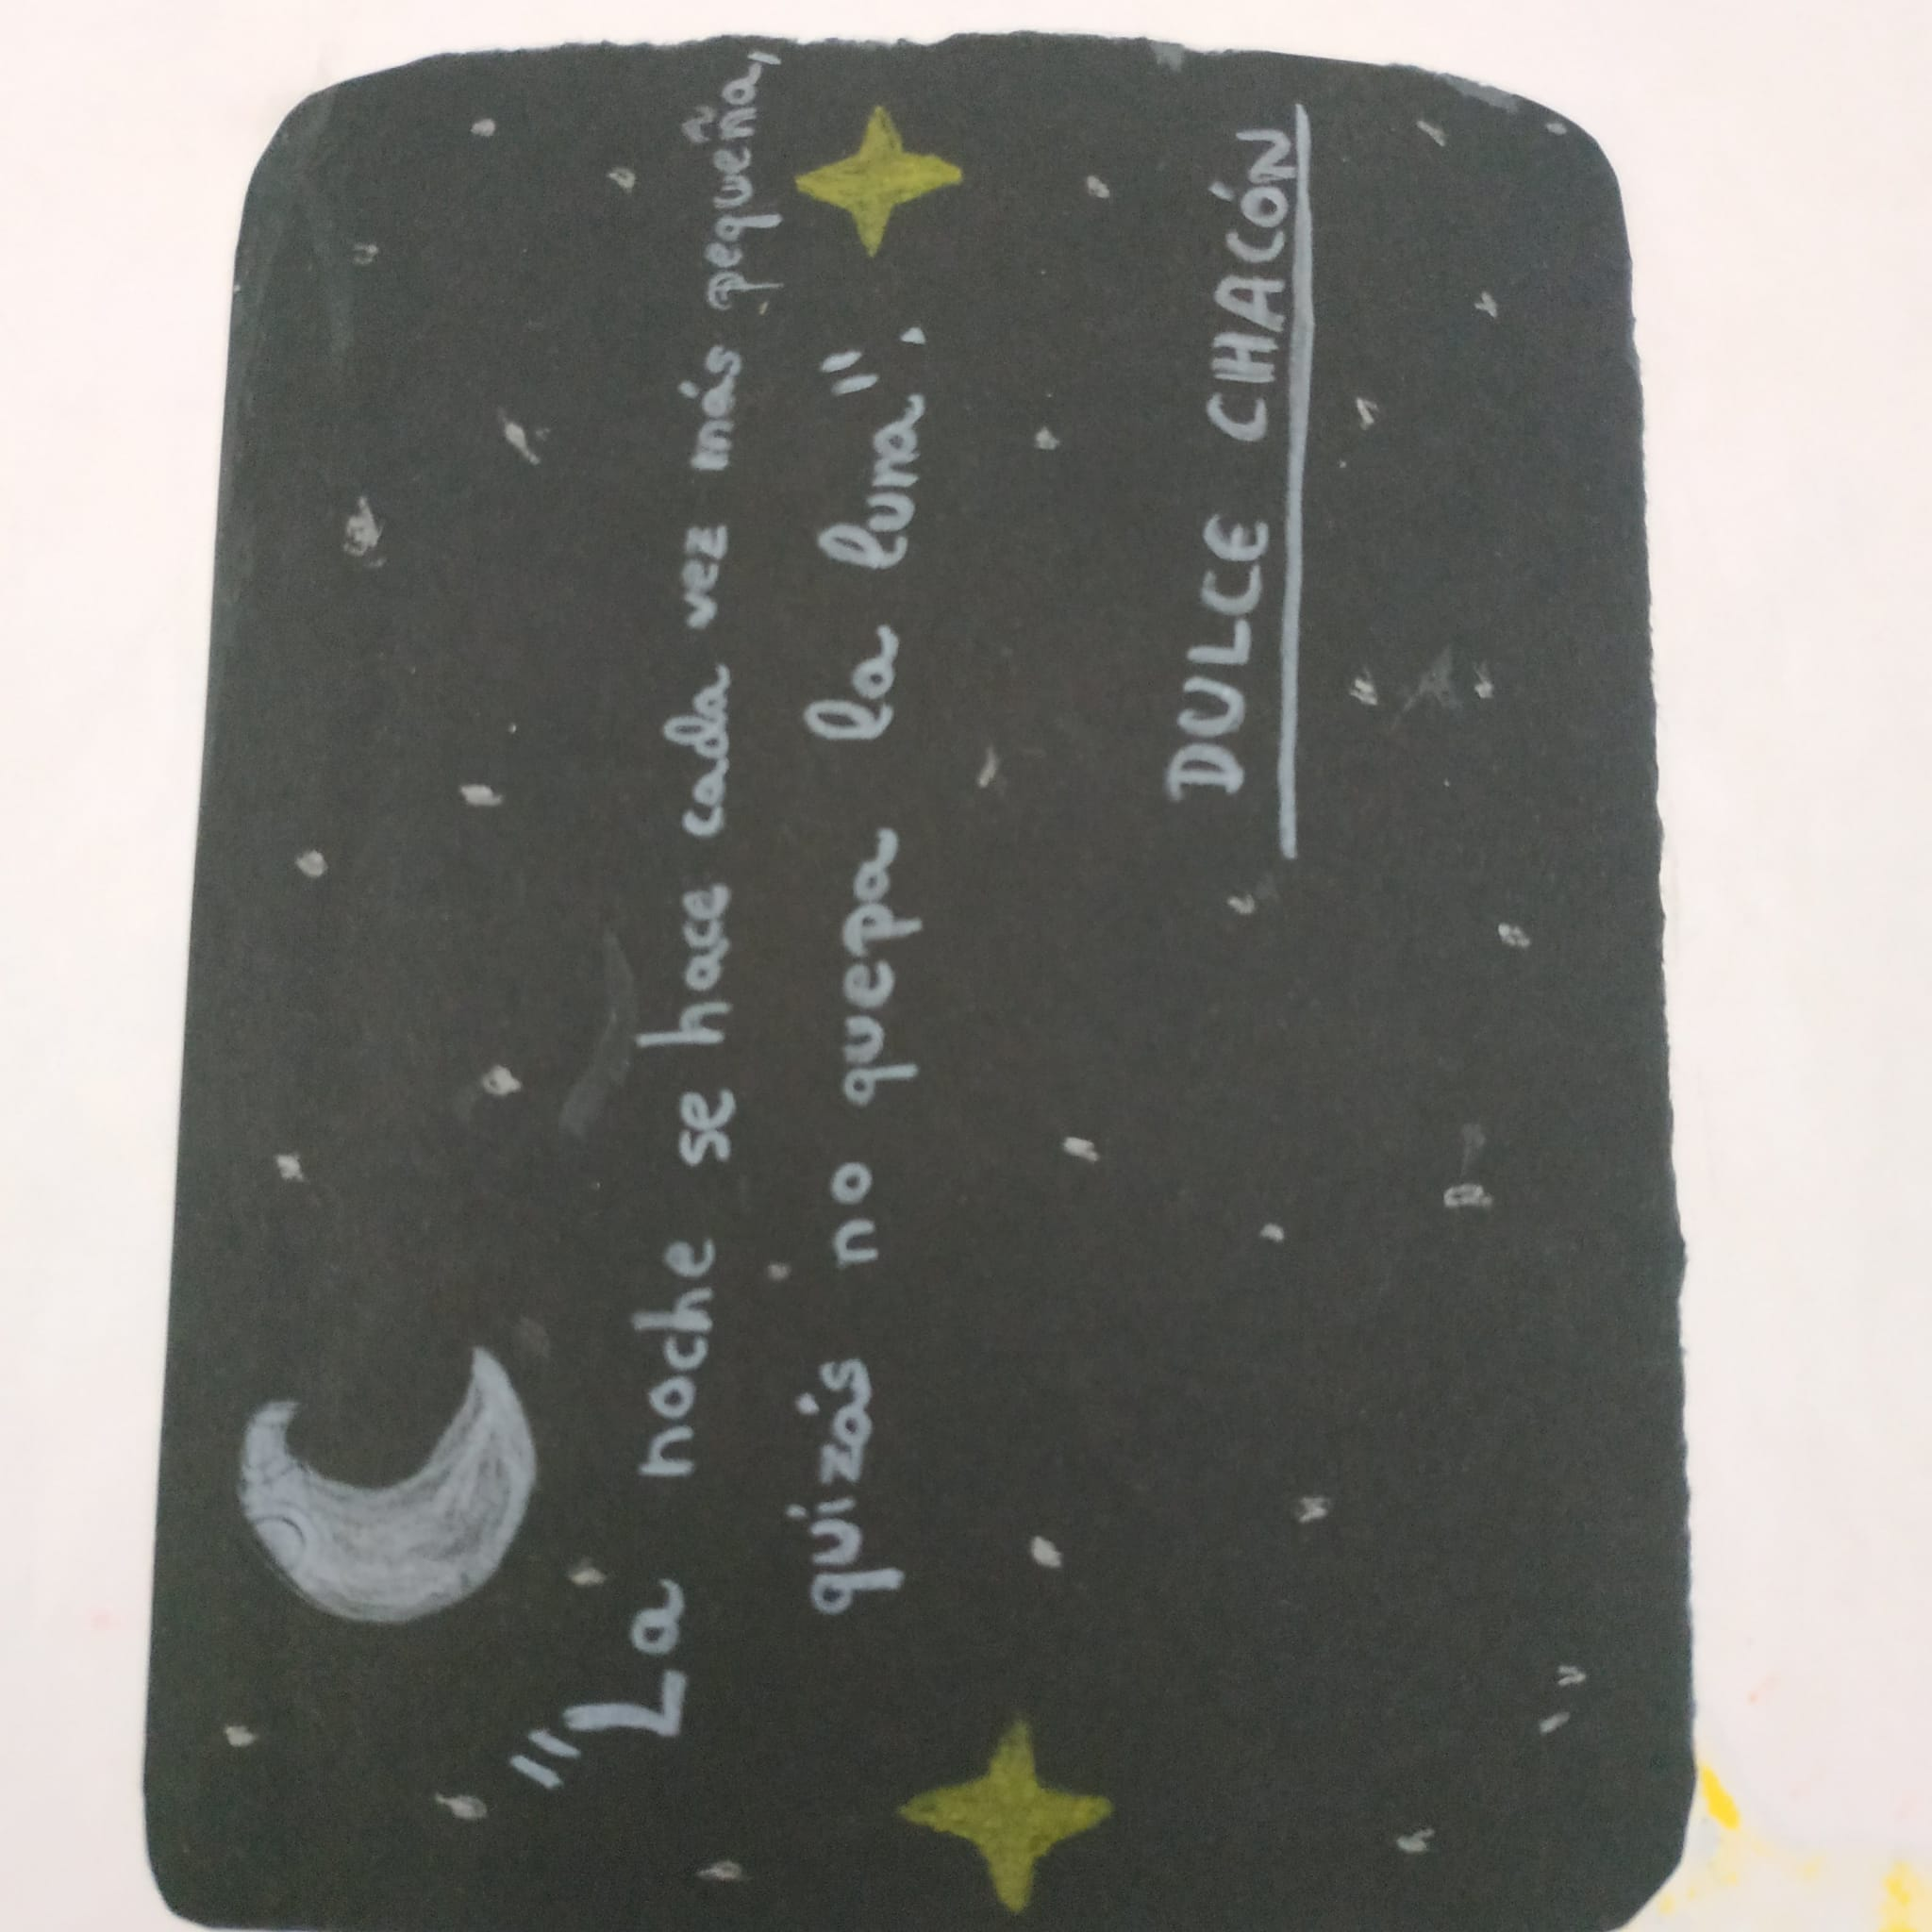 "La noche se hace cada vez más pequeña,
quizás no quepa la luna".
DULCE CHACÓN